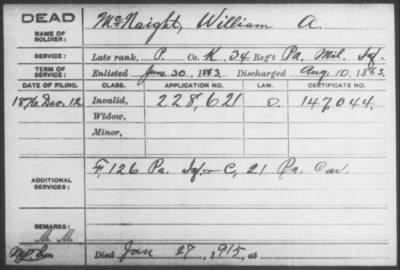 DEAD
NAME OF SOLDIER:
McNaight, William A.
SERVICE:
Late rank, P. Co. K, 34 Reg't Pa. Mil. Inf.
TERM OF SERVICE:
Enlisted June 30, 1863. Discharged Aug. 10, 1863.
DATE OF FILING. CLASS. APPLICATION NO. LAW. CERTIFICATE NO.
1876 Dec. 12 Invalid, 228,621 147,044.
Widow,
Minor,
ADDITIONAL SERVICES:
F, 126 Pa. Inf. + C, 21 Pa. Cav.
REMARKS:
M. M.
Died Jan 27, 1915, at